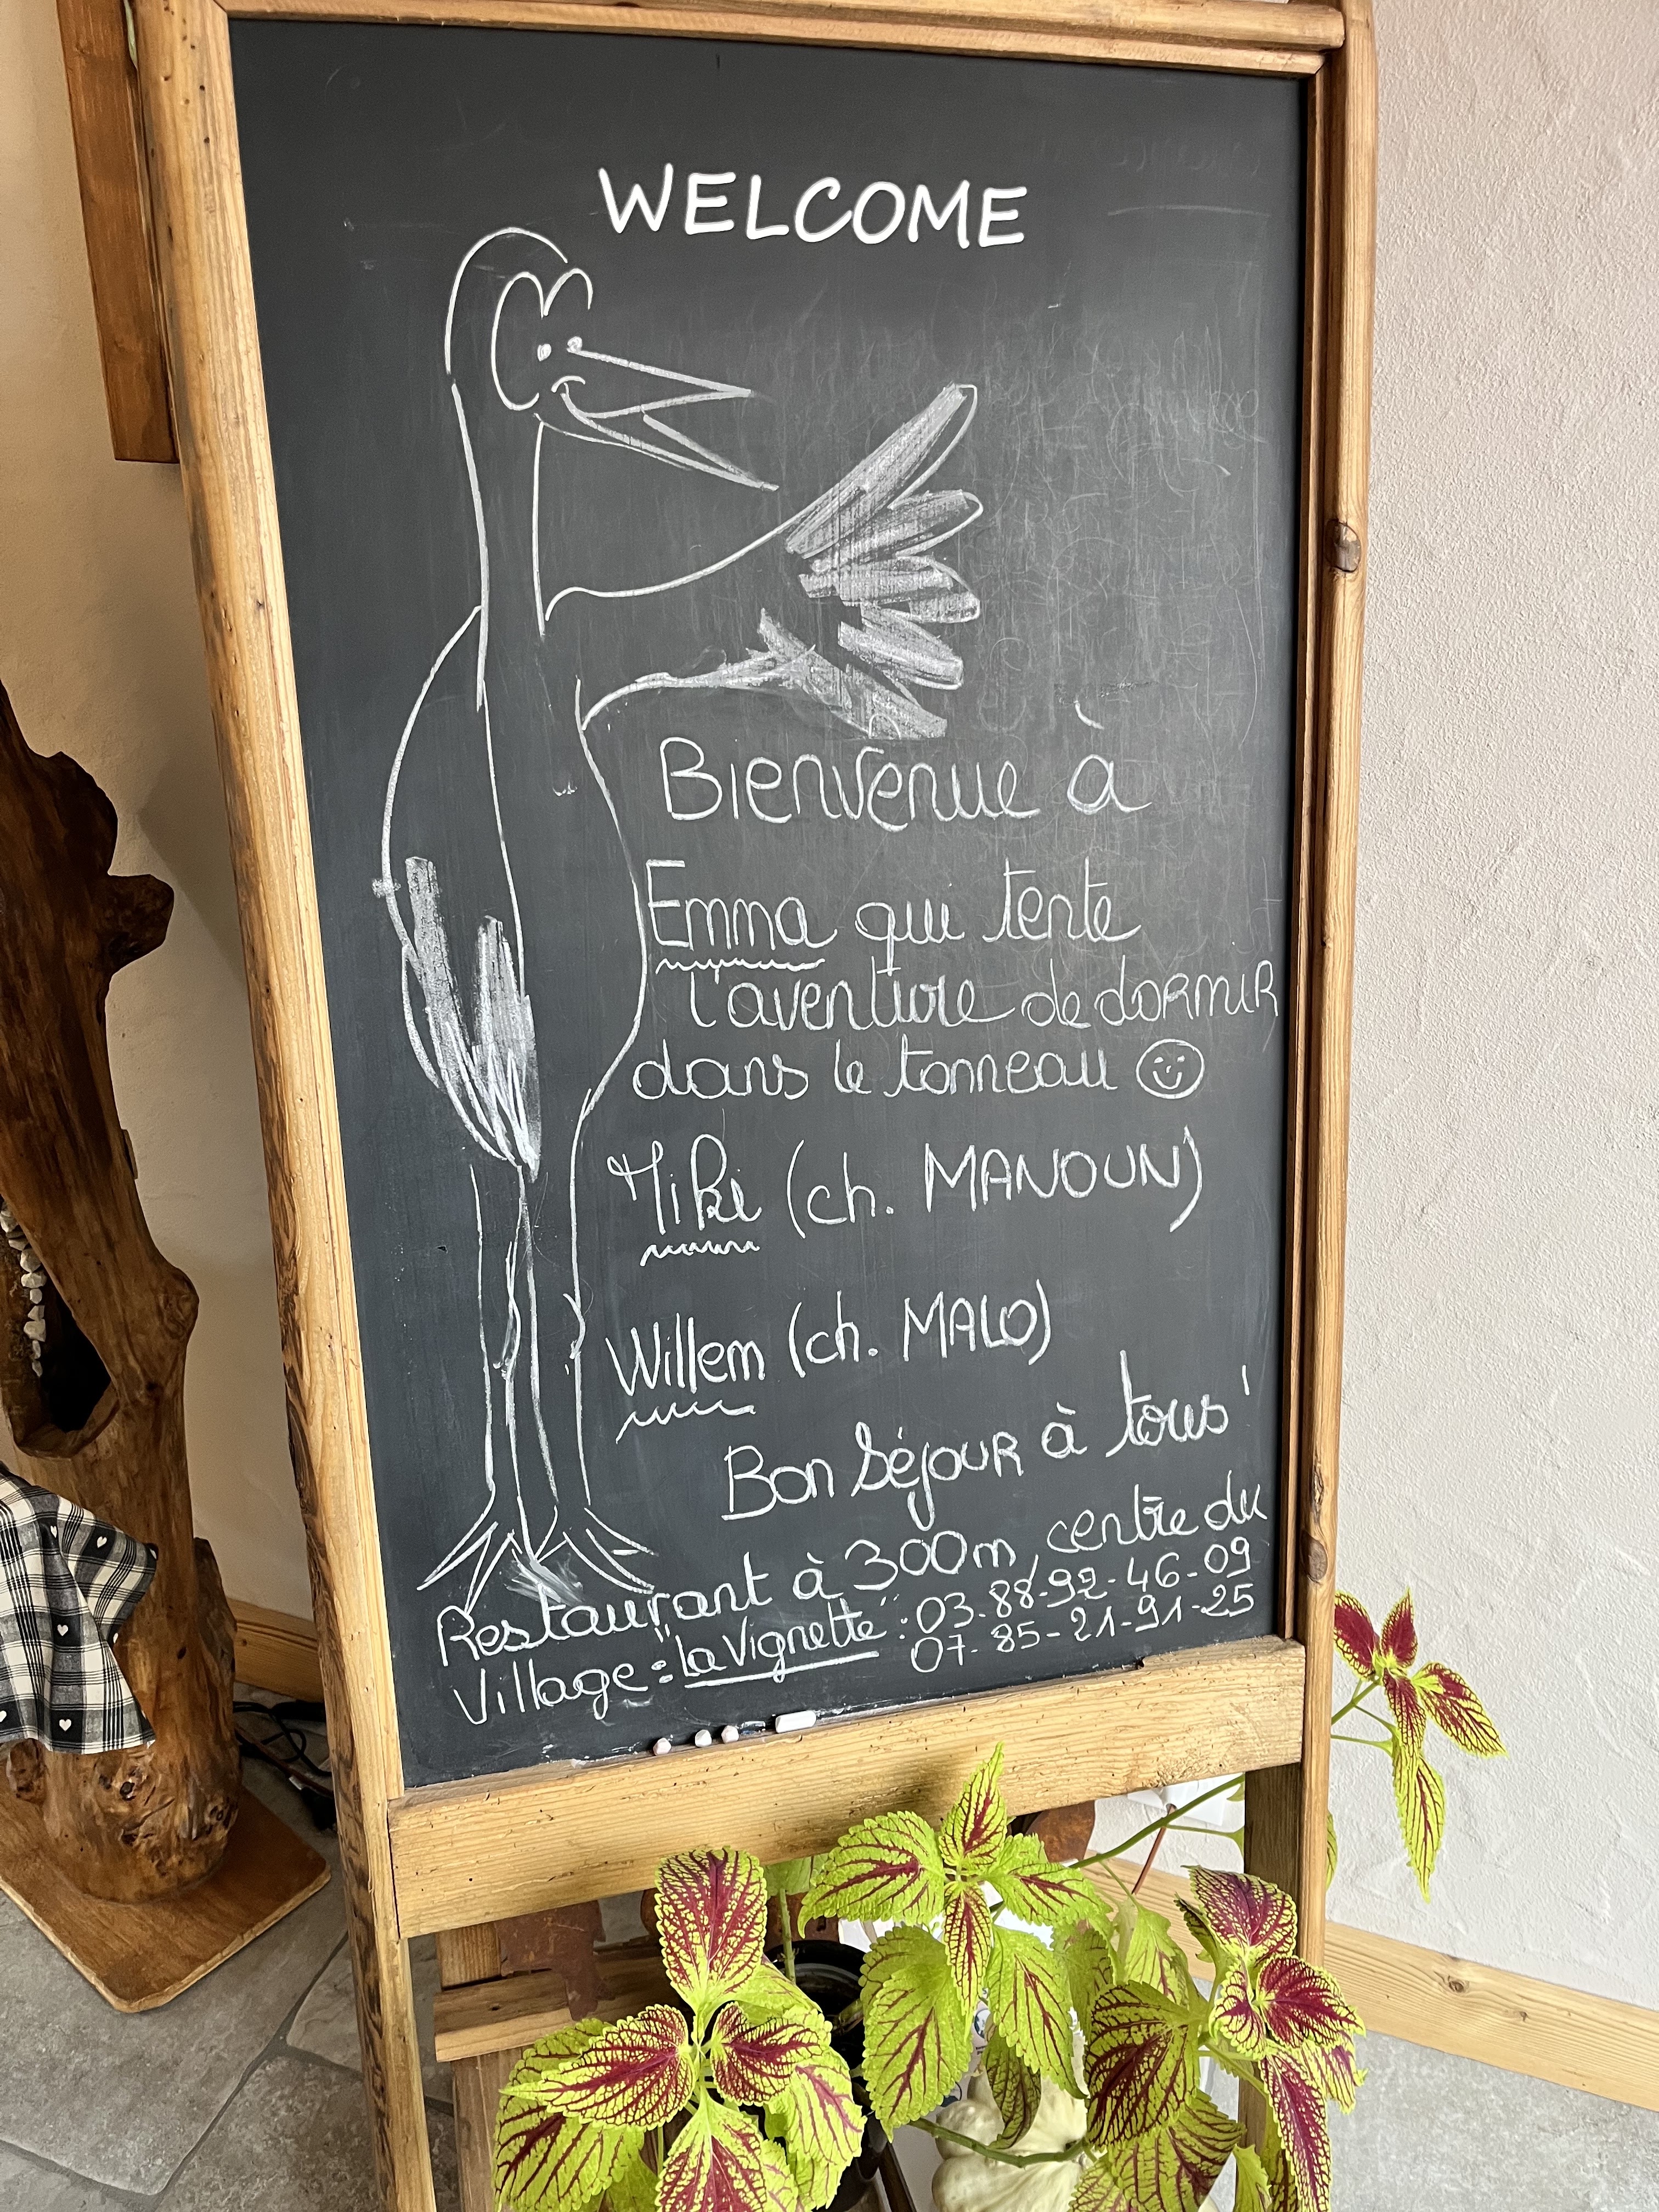 WELCOME
Bienvenue à
Emma qui tente
l'aventure de dormir
dans le tonneau
Mike (ch. MANOUN)
Willem (ch. MALO)
Bon Séjour à tous !
Restaurant à 300m, centre du
Village : "la Vignette" : 03-88-92-46-09
07-85-21-91-25